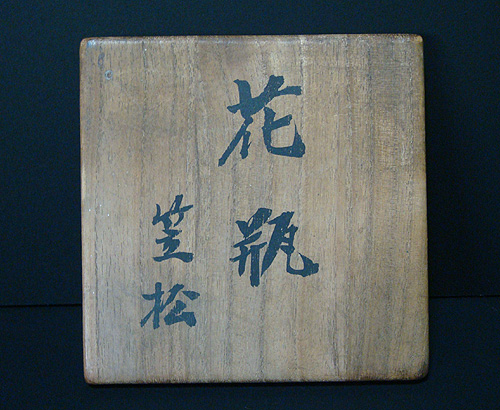 花瓶
笠松